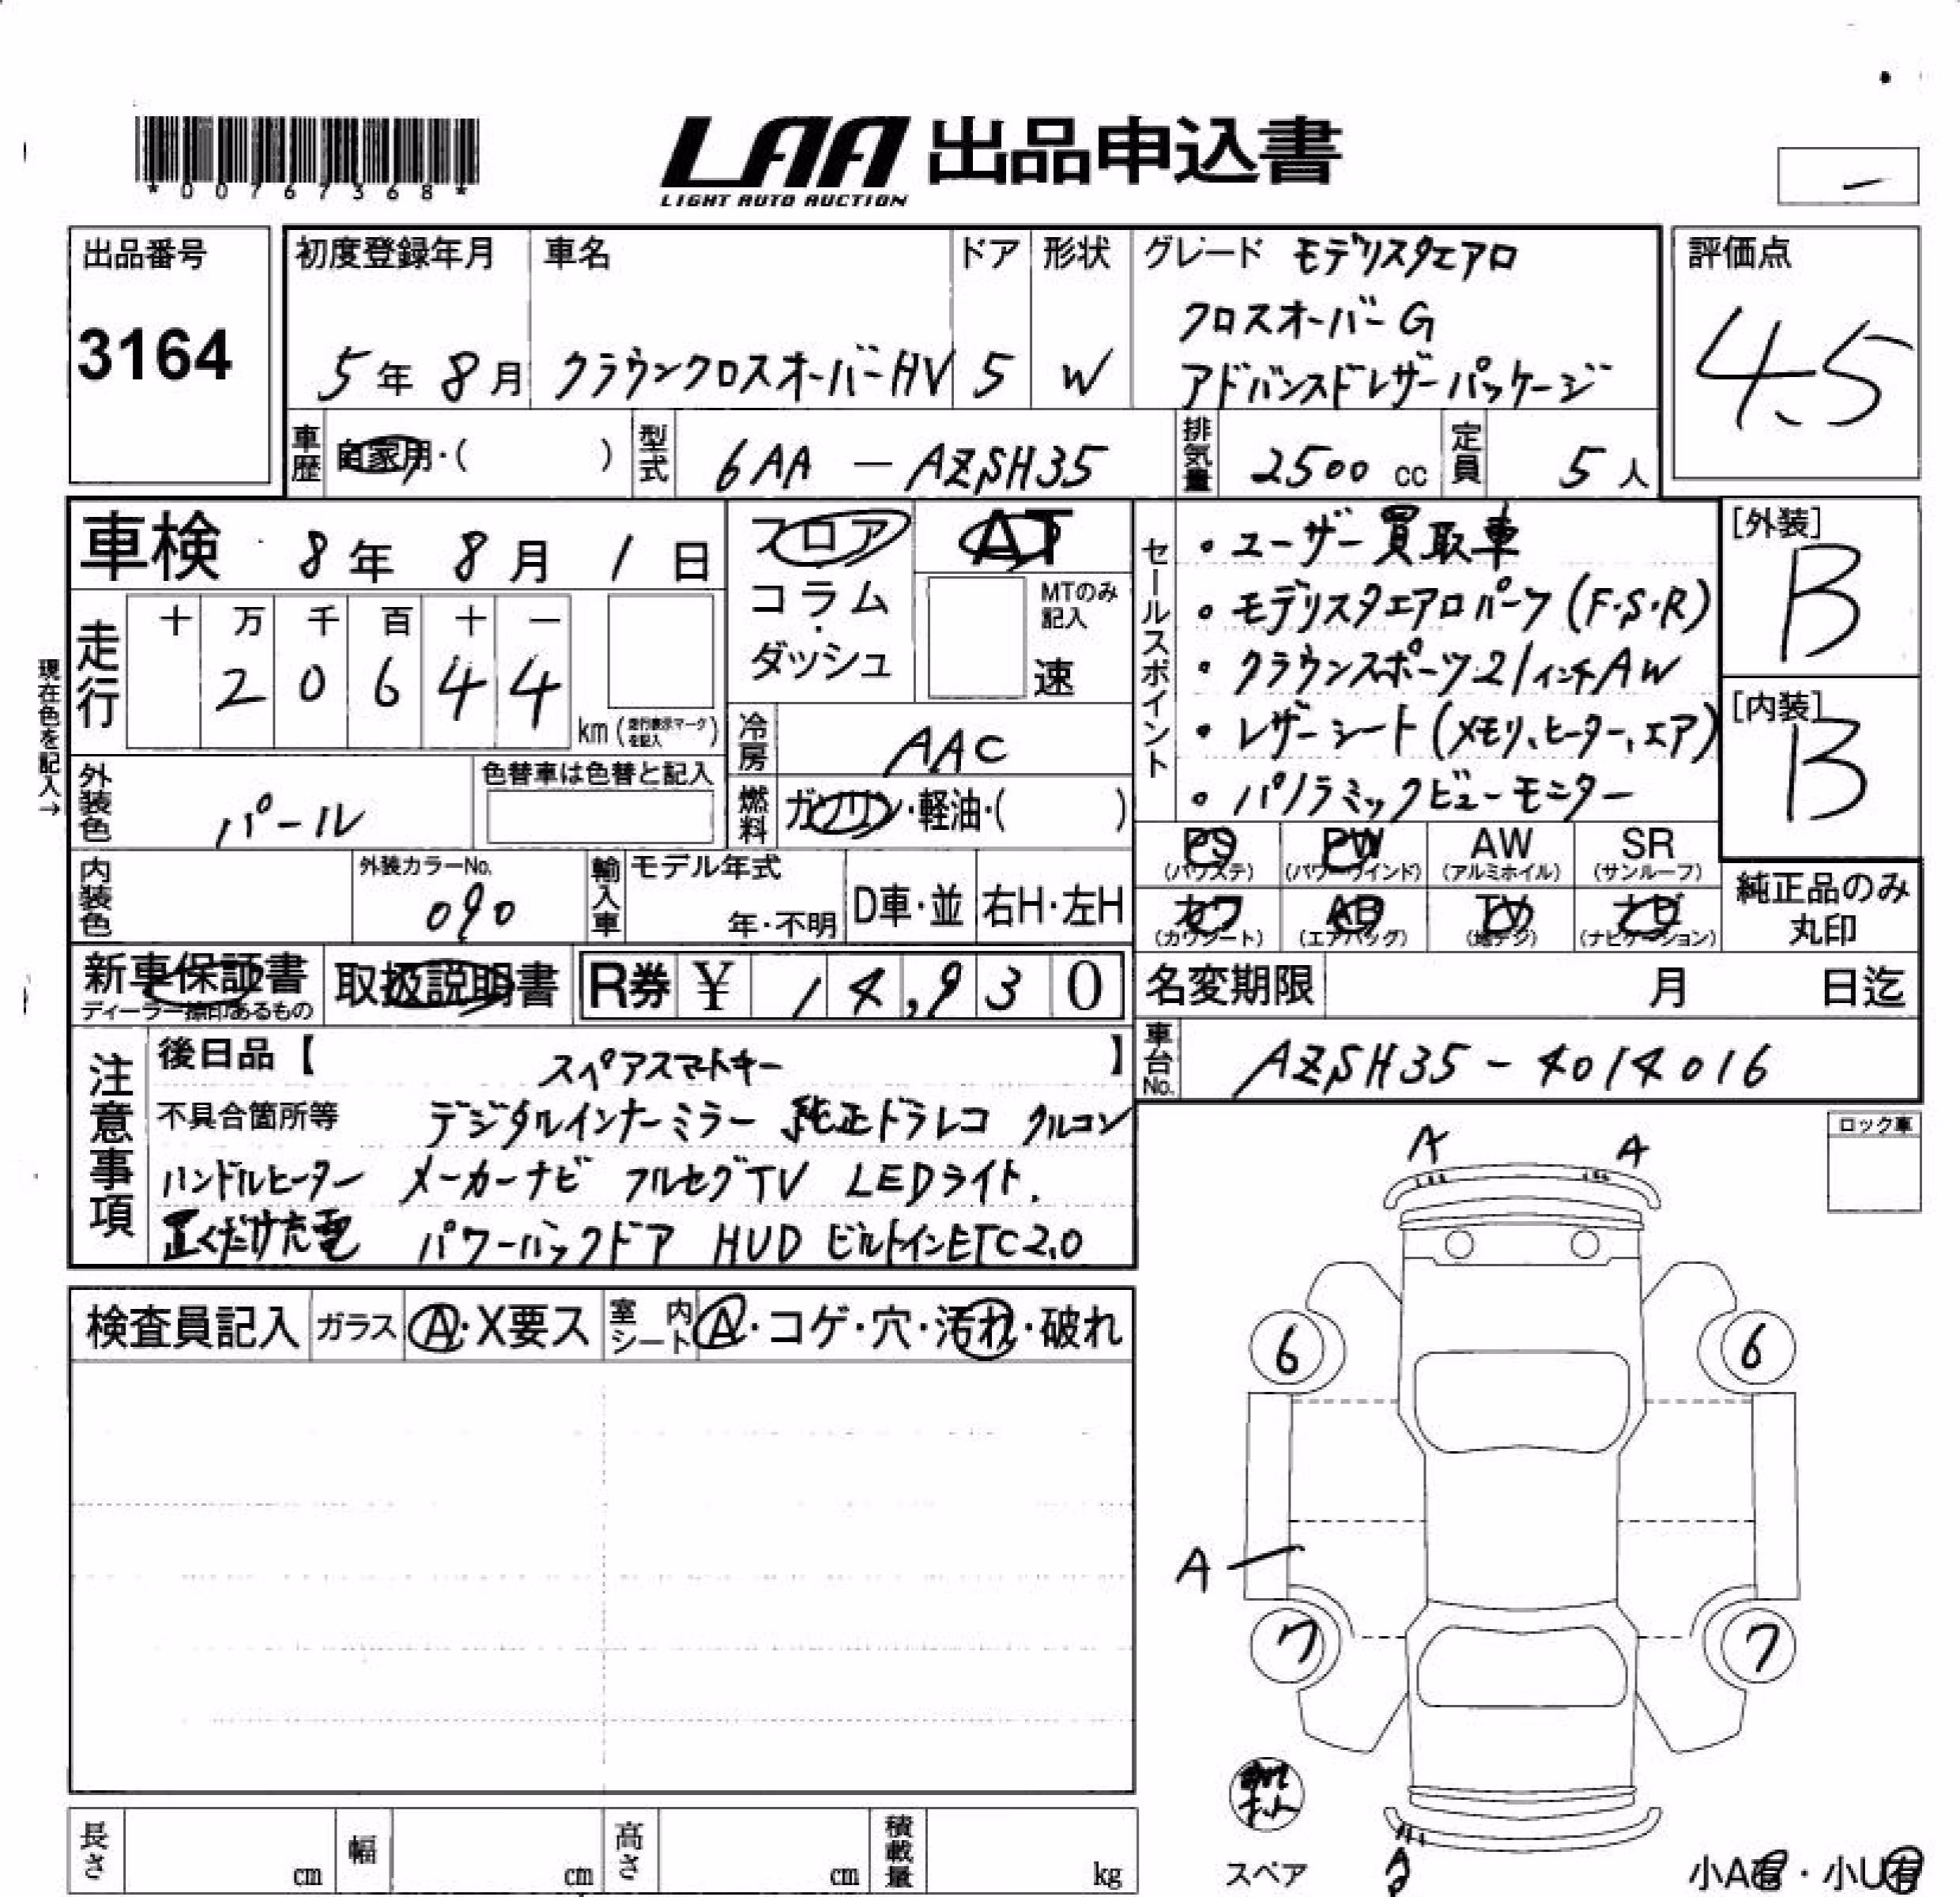 *00767368*
LAA 出品申込書
LIGHT AUTO AUCTION
出品番号
3164
初度登録年月
5年 8月
車名
クラウンクロスオーバーHV
ドア
5
形状
W
グレード モデリスタエアロ
クロスオーバーG
アドバンスドレザーパッケージ
評価点
4.5
車歴 自家用・( )
型式 6AA - AZSH35
排気量 2500 cc
定員 5人
車検 8年 8月 1日
フロア
コラム
ダッシュ
AT
MTのみ記入
速
走行 十 万 千 百 十 一
2 0 6 4 4
km (走行表示マークを記入)
現在色を記入→
冷房 AAC
外装色 パール
色替車は色替と記入
燃料 ガソリン・軽油・( )
内装色
外装カラーNo.
090
輸入車 モデル年式
年・不明
D車・並
右H・左H
セールスポイント
・ユーザー買取車
・モデリスタエアロパーツ(F・S・R)
・クラウンスポーツ21インチAW
・レザーシート(メモリ、ヒーター、エア)
・パノラミックビューモニター
[外装]
B
[内装]
B
PS (パワステ)
PW (パワーウインド)
AW (アルミホイル)
SR (サンルーフ)
カワ (カワシート)
AB (エアバッグ)
TV (地デジ)
ナビ (ナビゲーション)
純正品のみ
丸印
新車保証書
ディーラー捺印あるもの
取扱説明書
R券 ¥ 14,930
名変期限 月 日迄
車台No. AZSH35-4014016
注意事項
後日品【 スペアスマートキー 】
不具合箇所等 デジタルインナーミラー 純正ドラレコ クルコン
ハンドルヒーター メーカーナビ フルセグTV LEDライト.
置くだけ充電 パワーバックドア HUD ビルトインETC2.0
ロック車
検査員記入
ガラス A・X要ス
室内シート A・コゲ・穴・汚れ・破れ
A A
6 6
A
7 7
スペア
A
小A有・小U有
長さ cm
幅 cm
高さ cm
積載量 kg